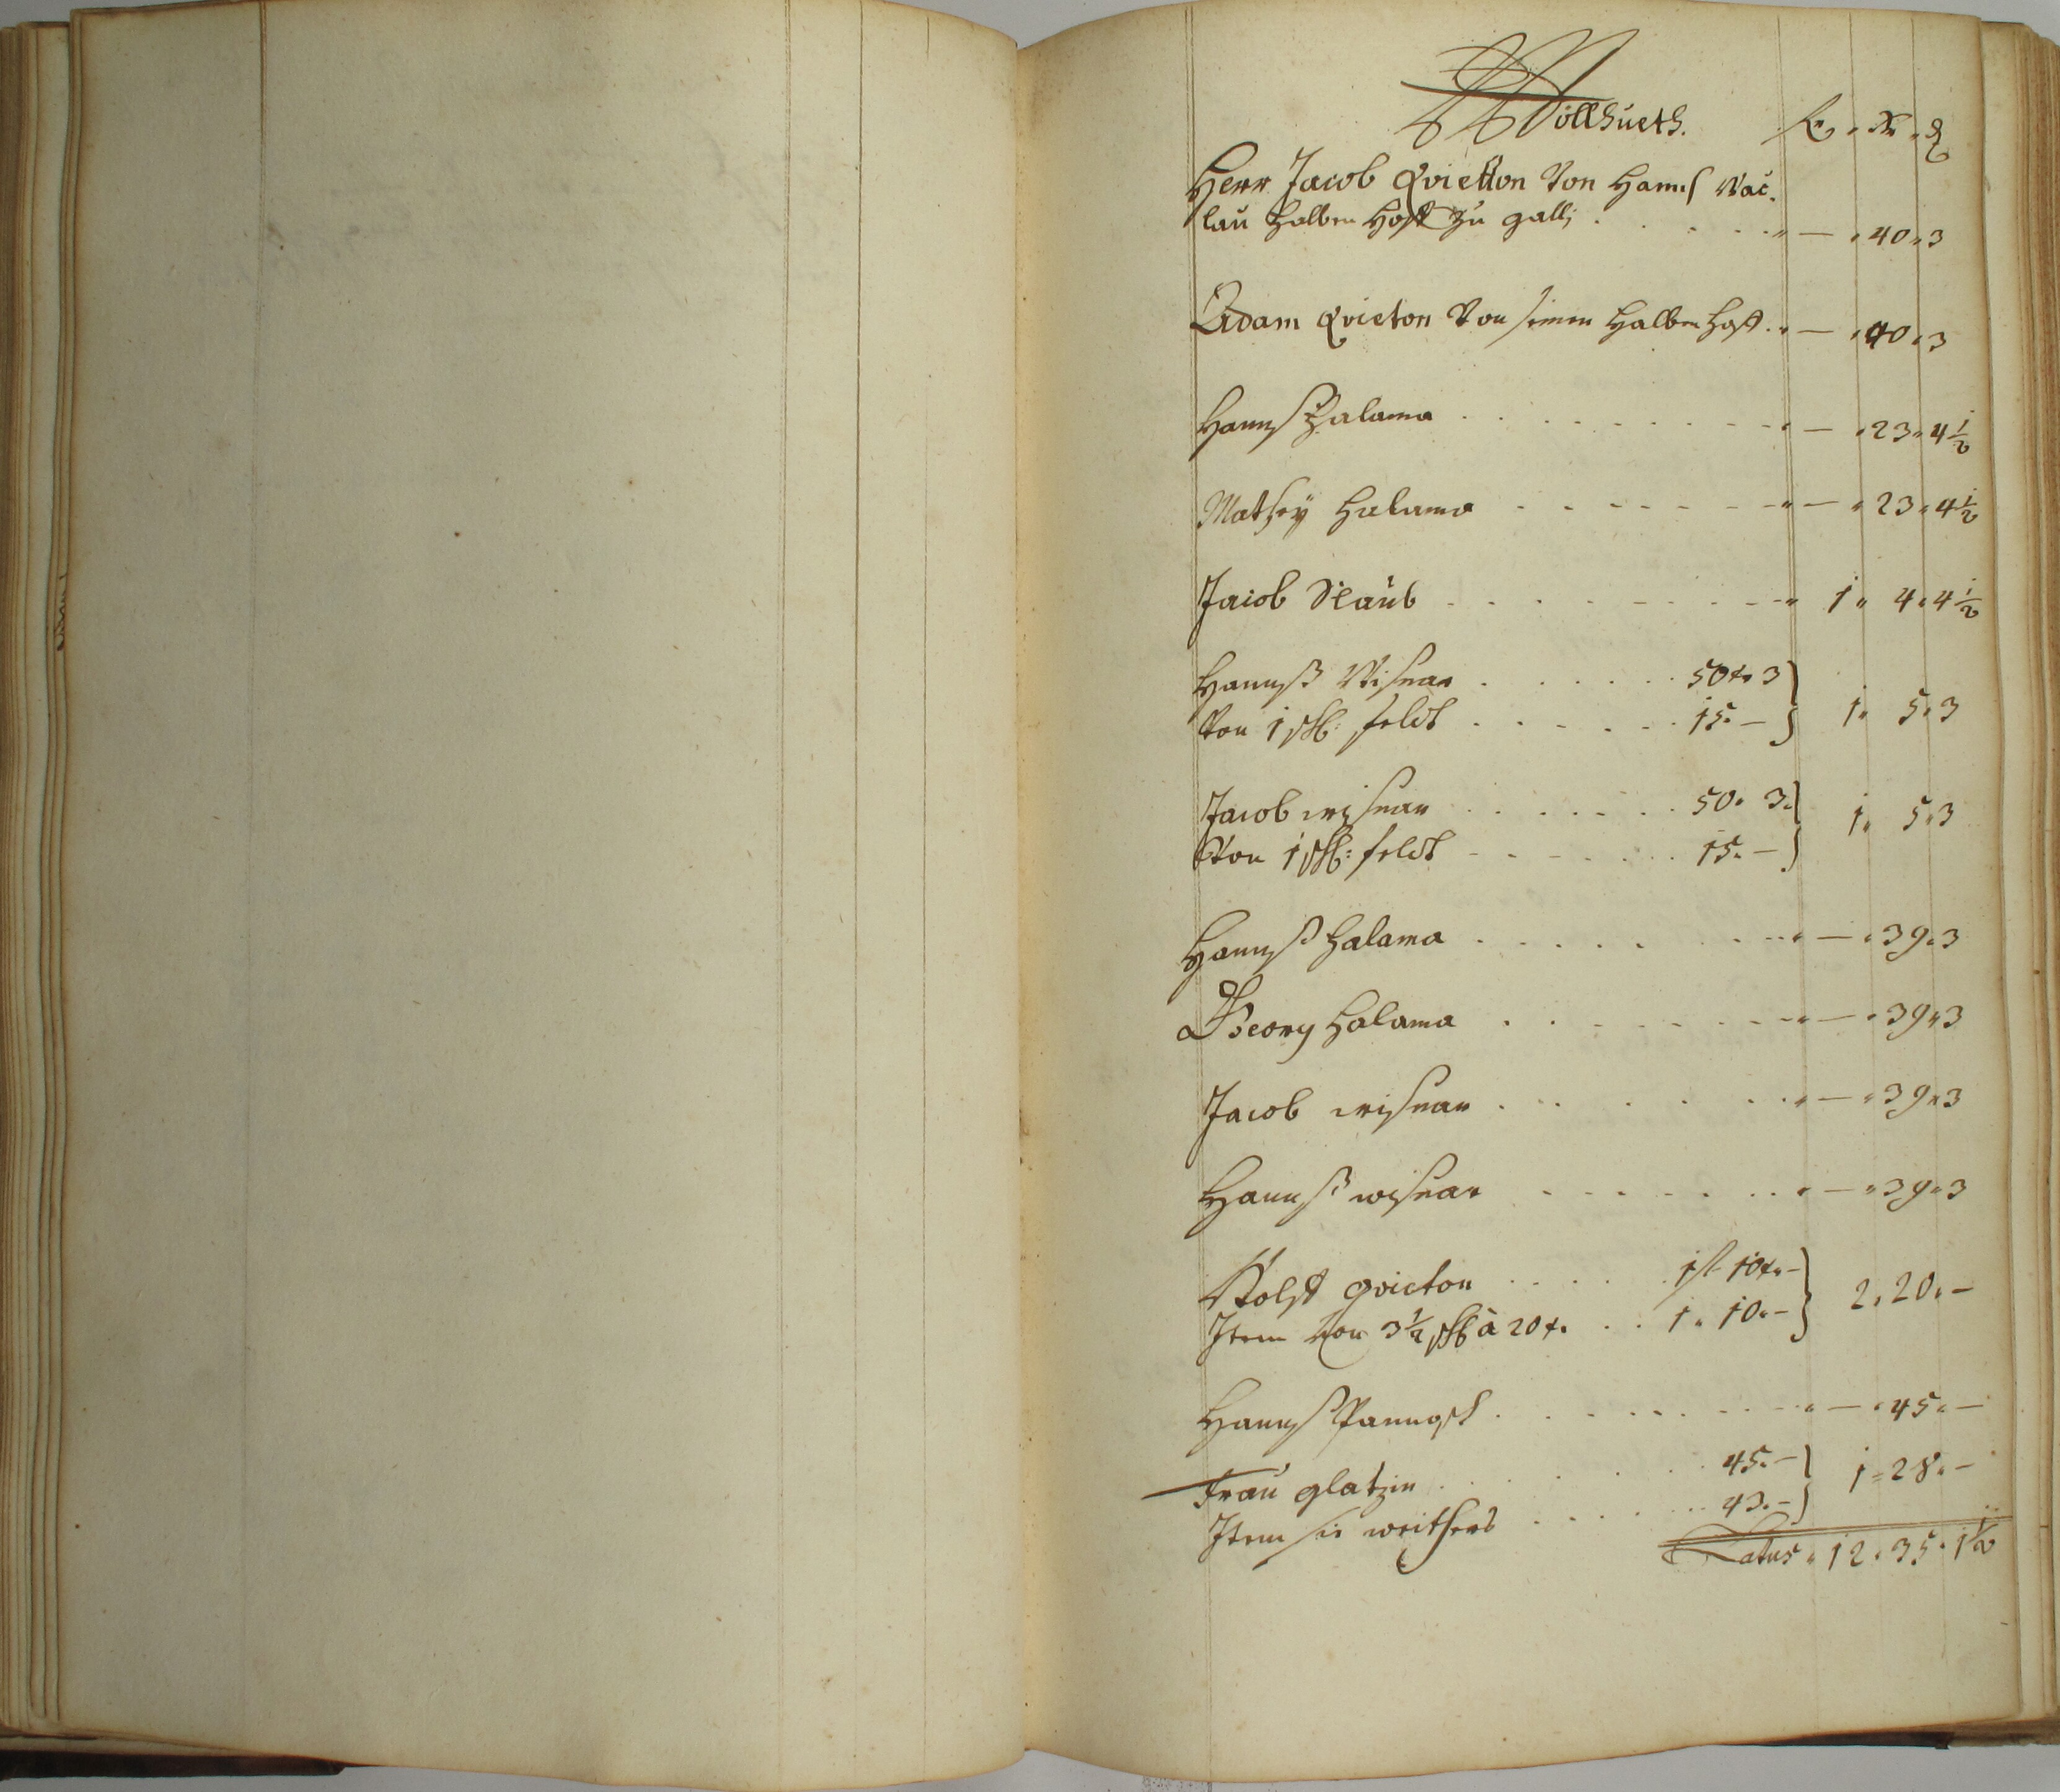 Wöllhueth. fl. xr. ₰
Herr Jacob Qvietton Von Hannß Wac.
lau halben Hoff zu galli . . . — . 40 . 3
Adam Qvieton Von seinem halben hoff . — . 40 . 3
Hannß Halama . . . — . 23 . 4 1/2
Mathey Halama . . . — . 23 . 4 1/2
Jacob Staub . . . 1 . 4 . 4 1/2
Hannß Wisnar . . . 50 xr 3 } 1 . 5 . 3
Von 1 schl: feldt . . . 15 . —
Jacob wisnar . . . 50 . 3 . } 1 . 5 . 3
Von 1 schl: feldt . . . 15 . —
Hannß Halama . . . — . 39 . 3
Georg Halama . . . — . 39 . 3
Jacob wisnar . . . — . 39 . 3
Hannß wisnar . . . — . 39 . 3
qvieton . . . 1 fl 10 xr — } 2 . 20 . —
Item Von 3 1/2 schl à 20 x. . . 1 . 10 . —
Hannß . . . — . 45 . —
Frau glatzin . . . 45 . — } 1 . 28 . —
Item . . . 43 . —
Latus . 12 . 35 . 1 1/2